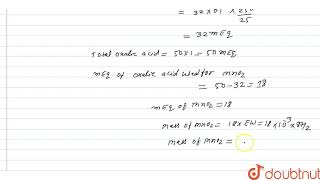 = 32 × 0.1 × 250/25
= 32 mEq
Total oxalic acid = 50×1 = 50 mEq
mEq of oxalic acid used for MnO2
= 50-32 = 18
mEq of MnO2 = 18
mass of MnO2 = 18 × EW = 18 × 10⁻³ × 87/2
mass of MnO2 =
doubtnut